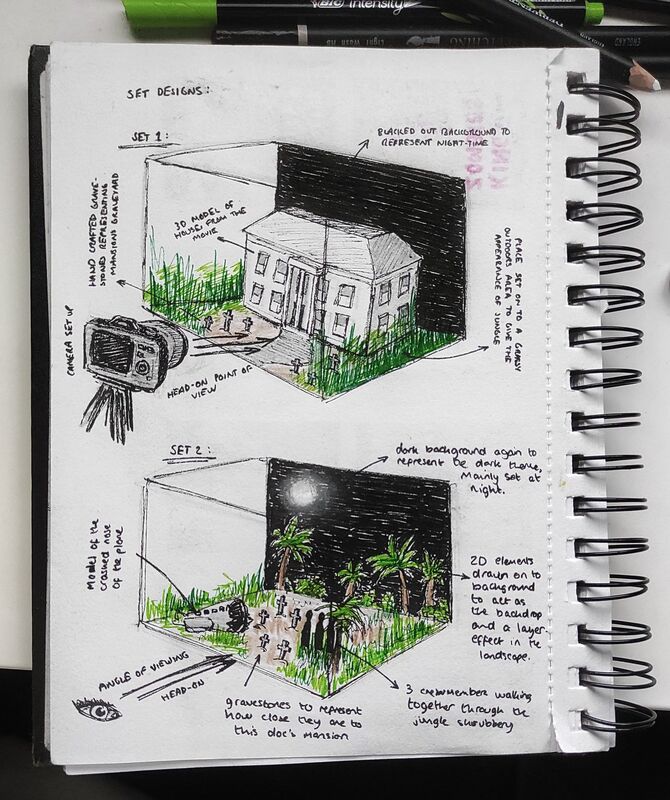 BIC intensity
Light Wash
ENGLAND
SET DESIGNS:
SET 1:
BLACKED OUT BACKGROUND TO
REPRESENT NIGHT-TIME
HAND CRAFTED GRAVE-
STONES REPRESENTING
MANSIONS GRAVEYARD
3D MODEL OF
HOUSE FROM THE
MOVIE
PLACE SET ON TO A GRASSY
OUTDOORS AREA TO GIVE THE
APPEARANCE OF JUNGLE
CAMERA SET UP
HEAD-ON POINT OF
VIEW
SET 2:
dark background again to
represent the dark theme,
Mainly set at
night.
Model of the
crashed nose
of the plane
2D elements
drawn on to
background
to act as
the backdrop
and a layer-
effect in the
landscape.
ANGLE OF VIEWING
HEAD-ON
gravestones to represent
how close they are to
this doc's mansion
3 crewmembers walking
together through the
jungle shrubbery